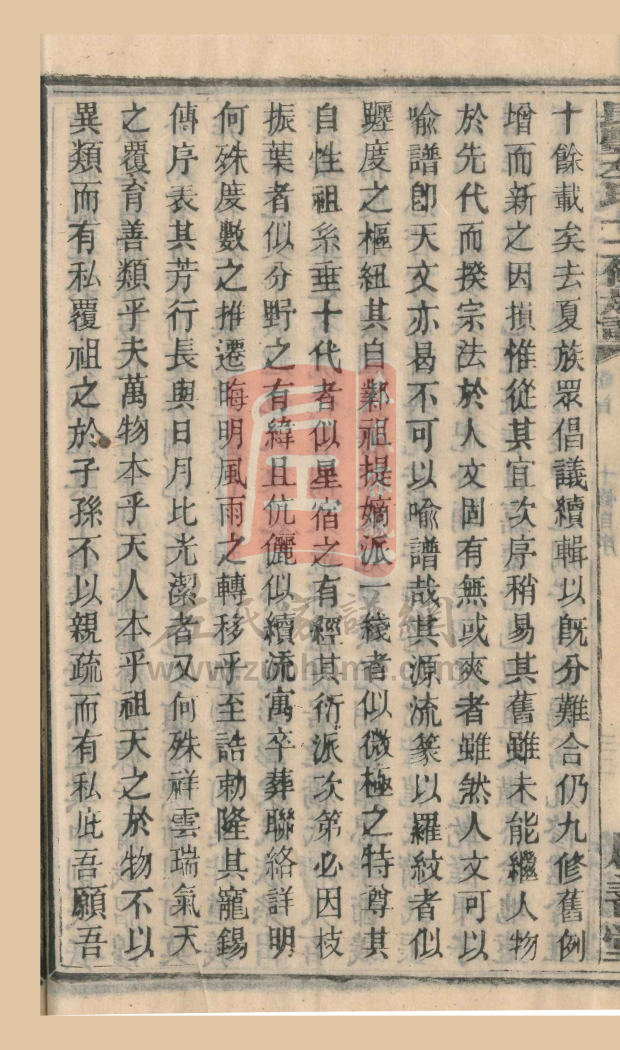 十餘載矣去夏族眾倡議續輯以旣分難合仍九修舊例
增而新之因損惟從其宜次序稍易其舊雖未能繼人物
於先代而揆宗法於人文固有無或爽者雖然人文可以
喻譜卽天文亦曷不可以喻譜哉其源流篆以羅紋者似
躔度之樞紐其自鄴祖提嫡派一綫者似微極之特尊其
自性祖糸垂十代者似星宿之有經其衍派次第必因枝
振葉者似分野之有緯且伉儷似續流寓卒葬聯絡詳明
何殊度數之推遷晦明風雨之轉移乎至誥勅隆其寵錫
傳序表其芳行長與日月比光潔者又何殊祥雲瑞氣天
之覆育善類乎夫萬物本乎天人本乎祖天之於物不以
異類而有私覆祖之於子孫不以親疏而有私庇吾願吾
左氏家譜網
www.zuohome.com